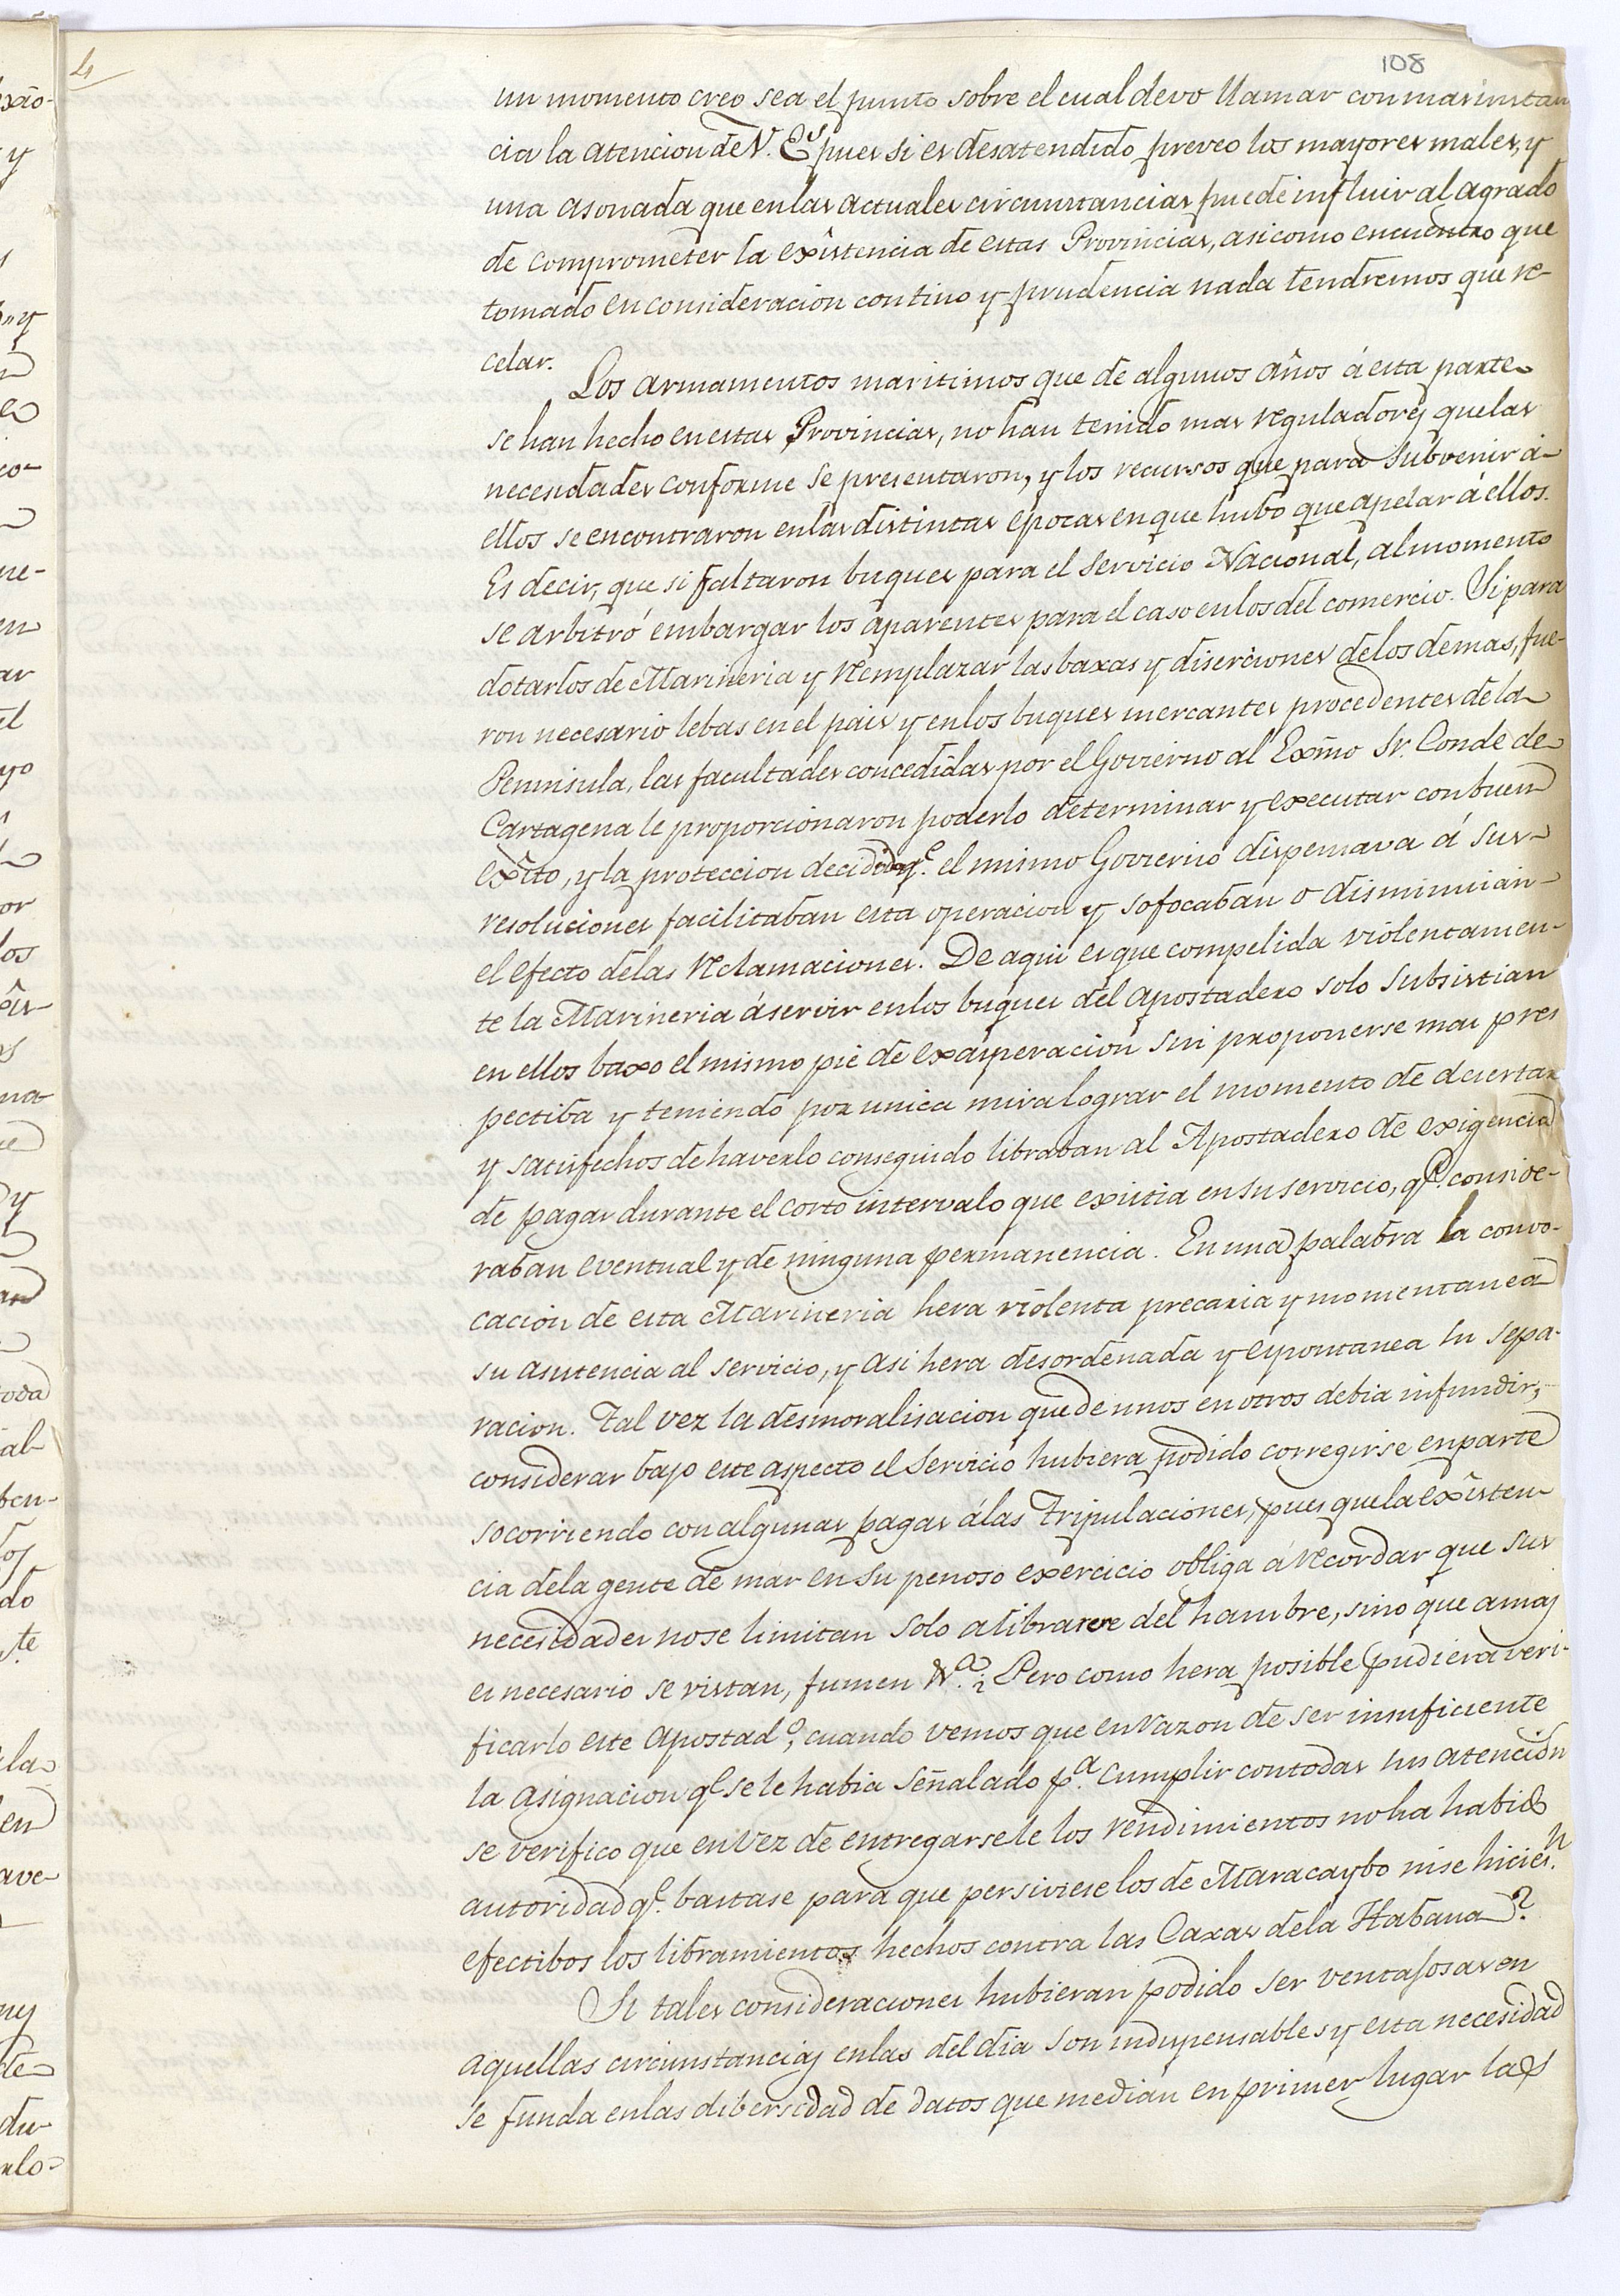 4
108
un momento creo sea el punto sobre el cual devo llamar con mas instan
cia la atencion de V. E.s pues si es desatendido preveo los mayores males, y
una asonada que en las actuales circunstancias puede influir al agrado
de comprometer la exîstencia de estas Provincias, asi como encuentro que
tomado en consideracion con tino y prudencia nada tendremos que re-
celar.
Los armamentos maritimos que de algunos años á esta parte
se han hecho en estas Provincias, no han tenido mas reguladores que las
necesidades conforme se presentaron, y los recursos que para subvenir á
ellos se encontraron en las distintas epocas en que hubo que apelar á ellos.
Es decir, que si faltaron buques para el servicio Nacional, al momento
se arbitró embargar los aparentes para el caso en los del comercio. Si para
dotarlos de Marineria y remplazar las baxas y diserciones de los demas, fue-
ron necesario lebas en el pais y en los buques mercantes procedentes de la
Peninsula, las facultades concedidas por el Govierno al Exmo Sr. Conde de
Cartagena le proporcionaron poderlo determinar y executar con buen
exîto, y la proteccion decidida q.e el mismo Govierno dispensava á sus
resoluciones facilitaban esta operacion y sofocaban o disminuian
el efecto de las reclamaciones. De aqui es que compelida violentamen-
te la Marineria á servir en los buques del apostadero solo subsistian
en ellos baxo el mismo pie de exasperacion sin proponerse mas pres
pectiba y teniendo por unica mira lograr el momento de desertar
y satisfechos de haverlo conseguido libraban al Apostadero de exigencia
de pagas durante el corto intervalo que existia en su servicio, q.e conside-
raban eventual y de ninguna permanencia. En una palabra la convo-
cacion de esta Marineria hera violenta precaria y momentanea
su asistencia al servicio, y asi hera desordenada y espontanea su sepa-
racion. Tal vez la desmoralisacion que de unos en otros debia infundir,
considerar bajo este aspecto el servicio hubiera podido corregirse en parte
socorriendo con algunas pagas á las Tripulaciones, pues que la exîsten-
cia de la gente de mar en su penoso exercicio obliga á recordar que sus
necesidades no se limitan solo a librarse del hambre, sino que a mas
es necesario se vistan, fumen &.a ¿Pero como hera posible pudiera veri-
ficarlo este Apostad.o, cuando vemos que en razon de ser insuficiente
la asignacion q.e se le habia señalado p.a cumplir con todas sus atencion
se verifico que en vez de entregarsele los rendimientos no ha habido
autoridad q.e bastase para que persiviese los de Maracaybo ni se hicies.n
efectibos los libramientos hechos contra las Caxas de la Habana?
Si tales consideraciones hubieran podido ser ventajosas en
aquellas circunstancias en las del dia son indispensables y esta necesidad
se funda en las dibersidad de datos que median en primer lugar las